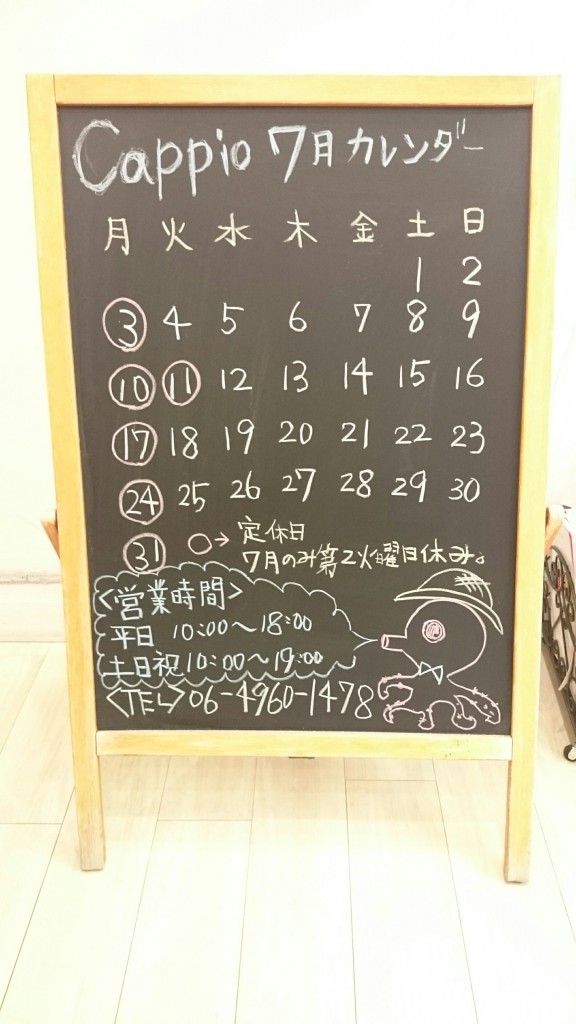 Cappio 7月カレンダー
月 火 水 木 金 土 日
1 2
3 4 5 6 7 8 9
10 11 12 13 14 15 16
17 18 19 20 21 22 23
24 25 26 27 28 29 30
31 ○→ 定休日
7月のみ第2火曜日休み。
<営業時間>
平日 10:00～18:00
土日祝 10:00～19:00
<TEL> 06-4960-1478